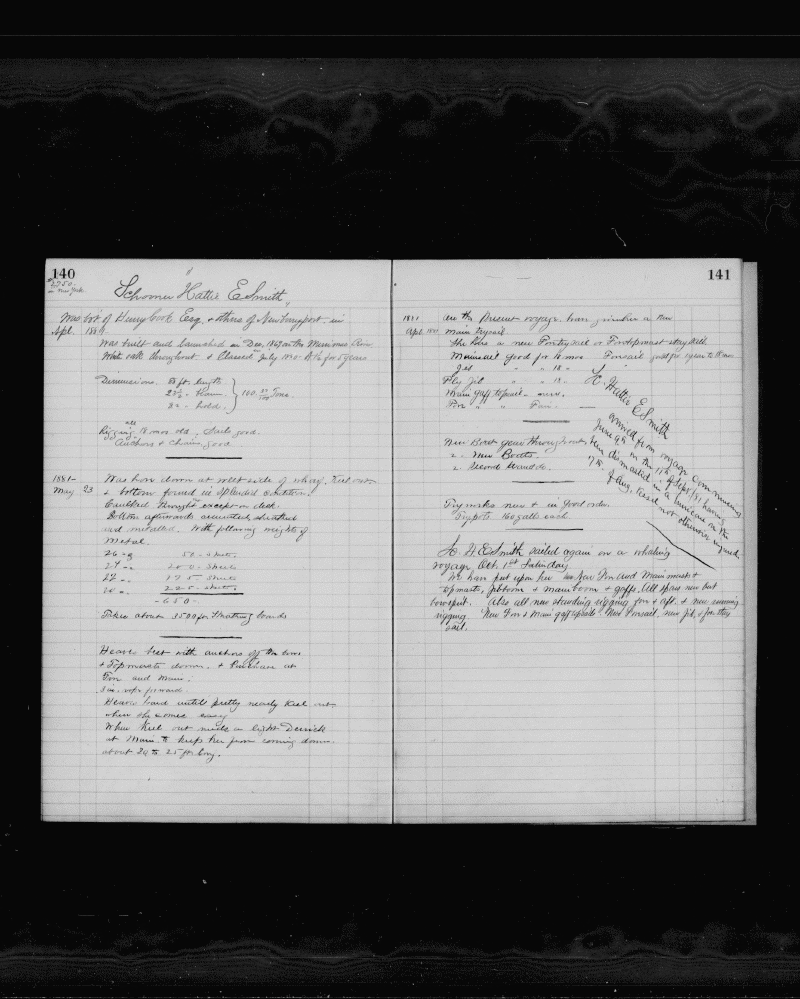 140
$2750.
in New York.
"
Schooner Hattie E Smith,
Was bot of Henry Cook Esq. & others of Newburyport in
Apl. 1881.
Was built and launched in Dec, 1869 on the Merrimac River
White oak throughout. & Classed in July 1880 A 1½ for 5 years
Dimensions. 88 ft. length
beam.
hold.
100 Tons.
all
Rigging 18 mos. old. Sails good.
Anchors & Chains good.
1881-
May 23
Was hove down at west side of wharf. Keel out
& bottom found in splendid condition.
Caulked throughout except on deck.
Bottom afterwards sheathed
and metalled. With following weights of
Metal.
26 oz 50 - sheets.
24 " 200 - sheets
22 " 175 - sheets
20 " 225 - sheets.
650 -
Takes about 3500 ft sheathing boards
Heaves best with anchors off the bows
& Topmasts down. & Purchase at
Fore and Main.
5 in. rope forward.
Heaves hard until pretty nearly Keel out
when she comes easy
When Keel out needs a light Derrick
at Main to keep her from coming down.
about 20 to 25 ft long.
141
1881
Apl.
On the Present voyage. have given her a new
main trysail.
She has a new Foretrysail or Forestaysail
Mainsail good for 18 mos Foresail good for 1 year to 18 mos.
Jib " " 18 "
Fly Jib " " 12 "
Main gaff topsail - new.
Fore " " Fair. -
New Boat gear throughout
2. New Boats.
2. Second hand do.
Sc. Hattie E Smith
arrived from voyage commencing
June 9th on the 11th of Sept/81 having
been dismasted in a hurricane on the
of Aug. Vessel not otherwise injured.
Try works new & in good order.
Try pots 160 galls each
Sc. H E Smith sailed again on a whaling
voyage Oct. 1st Saturday
We have put upon her new Fore and Main masts &
topmasts, jibboom & mainboom & gaffs. All spars new but
bowsprit. Also all new standing rigging fore & aft. & new running
rigging. New Fore & Main gaff topsails. New Foresail, new jib, & fore stay
sail.